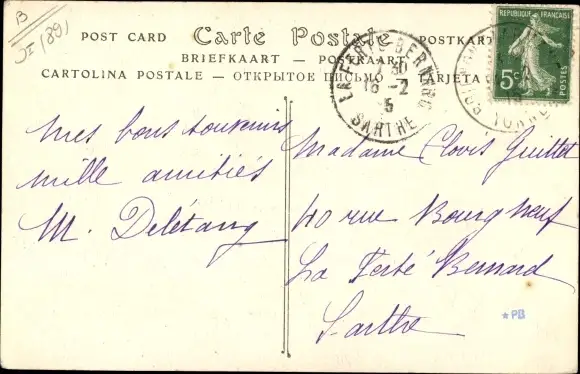 B
(89)
POST CARD Carte Postale POSTKARTE
BRIEFKAART — POSTKAART
CARTOLINA POSTALE — ОТКРЫТОЕ ПИСЬМО — TARJETA
REPUBLIQUE FRANÇAISE
5c
POSTES
LA FERTÉ-BERNARD
18 - 2
5
SARTHE
YONNE
mes bons souvenirs
mille amitiés
M. Delétang
Madame Clovis Guillet
40 rue Bourgneuf
La Ferté Bernard
Sarthe
*PB